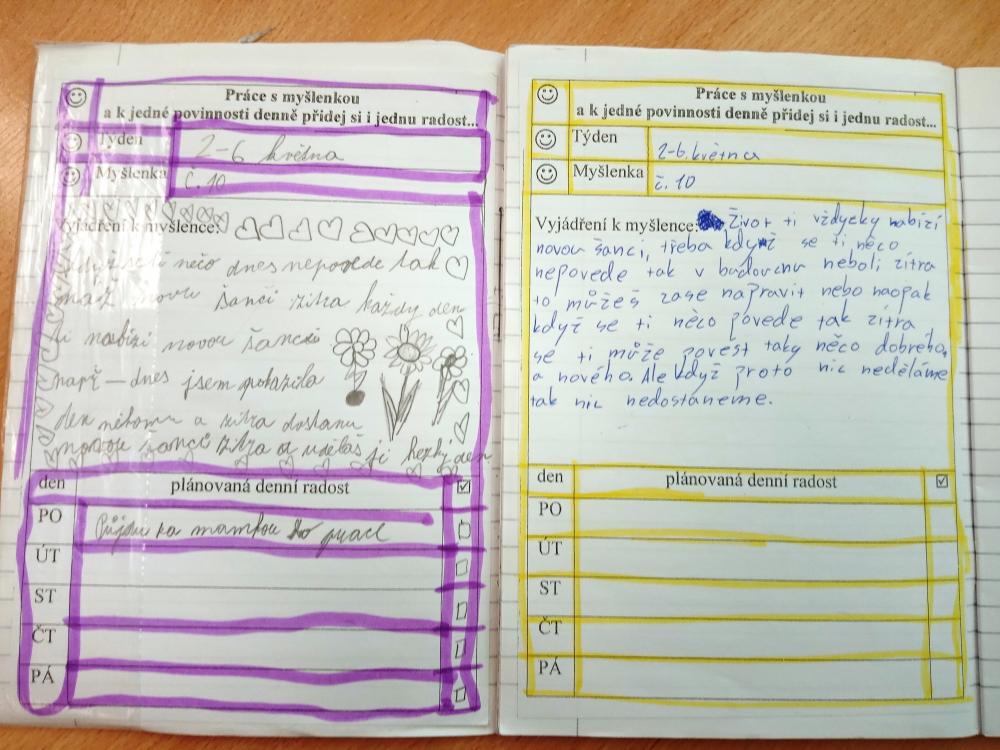 Práce s myšlenkou
a k jedné povinnosti denně přidej si i jednu radost...
Týden 2-6 května
Myšlenka č. 10
Vyjádření k myšlence:
když se ti něco dnes nepovede tak
máš novou šanci zítra každy den
ti nabízí novou šanci
např – dnes jsem pokazila
den někomu a zítra dostanu
novou šanci zítra a uděláš ji hezky den
den plánovaná denní radost
PO Půjdu za mamkou do prace
ÚT
ST
ČT
PÁ
Práce s myšlenkou
a k jedné povinnosti denně přidej si i jednu radost...
Týden 2-6. května
Myšlenka č. 10
Vyjádření k myšlence: Život ti vždycky nabízí
novou šanci, třeba když se ti něco
nepovede tak v budoucnu neboli zítra
to můžeš zase napravit nebo naopak
když se ti něco povede tak zítra
se ti může povést taky něco dobrého,
a nového. Ale když proto nic neděláme
tak nic nedostaneme.
den plánovaná denní radost
PO
ÚT
ST
ČT
PÁ